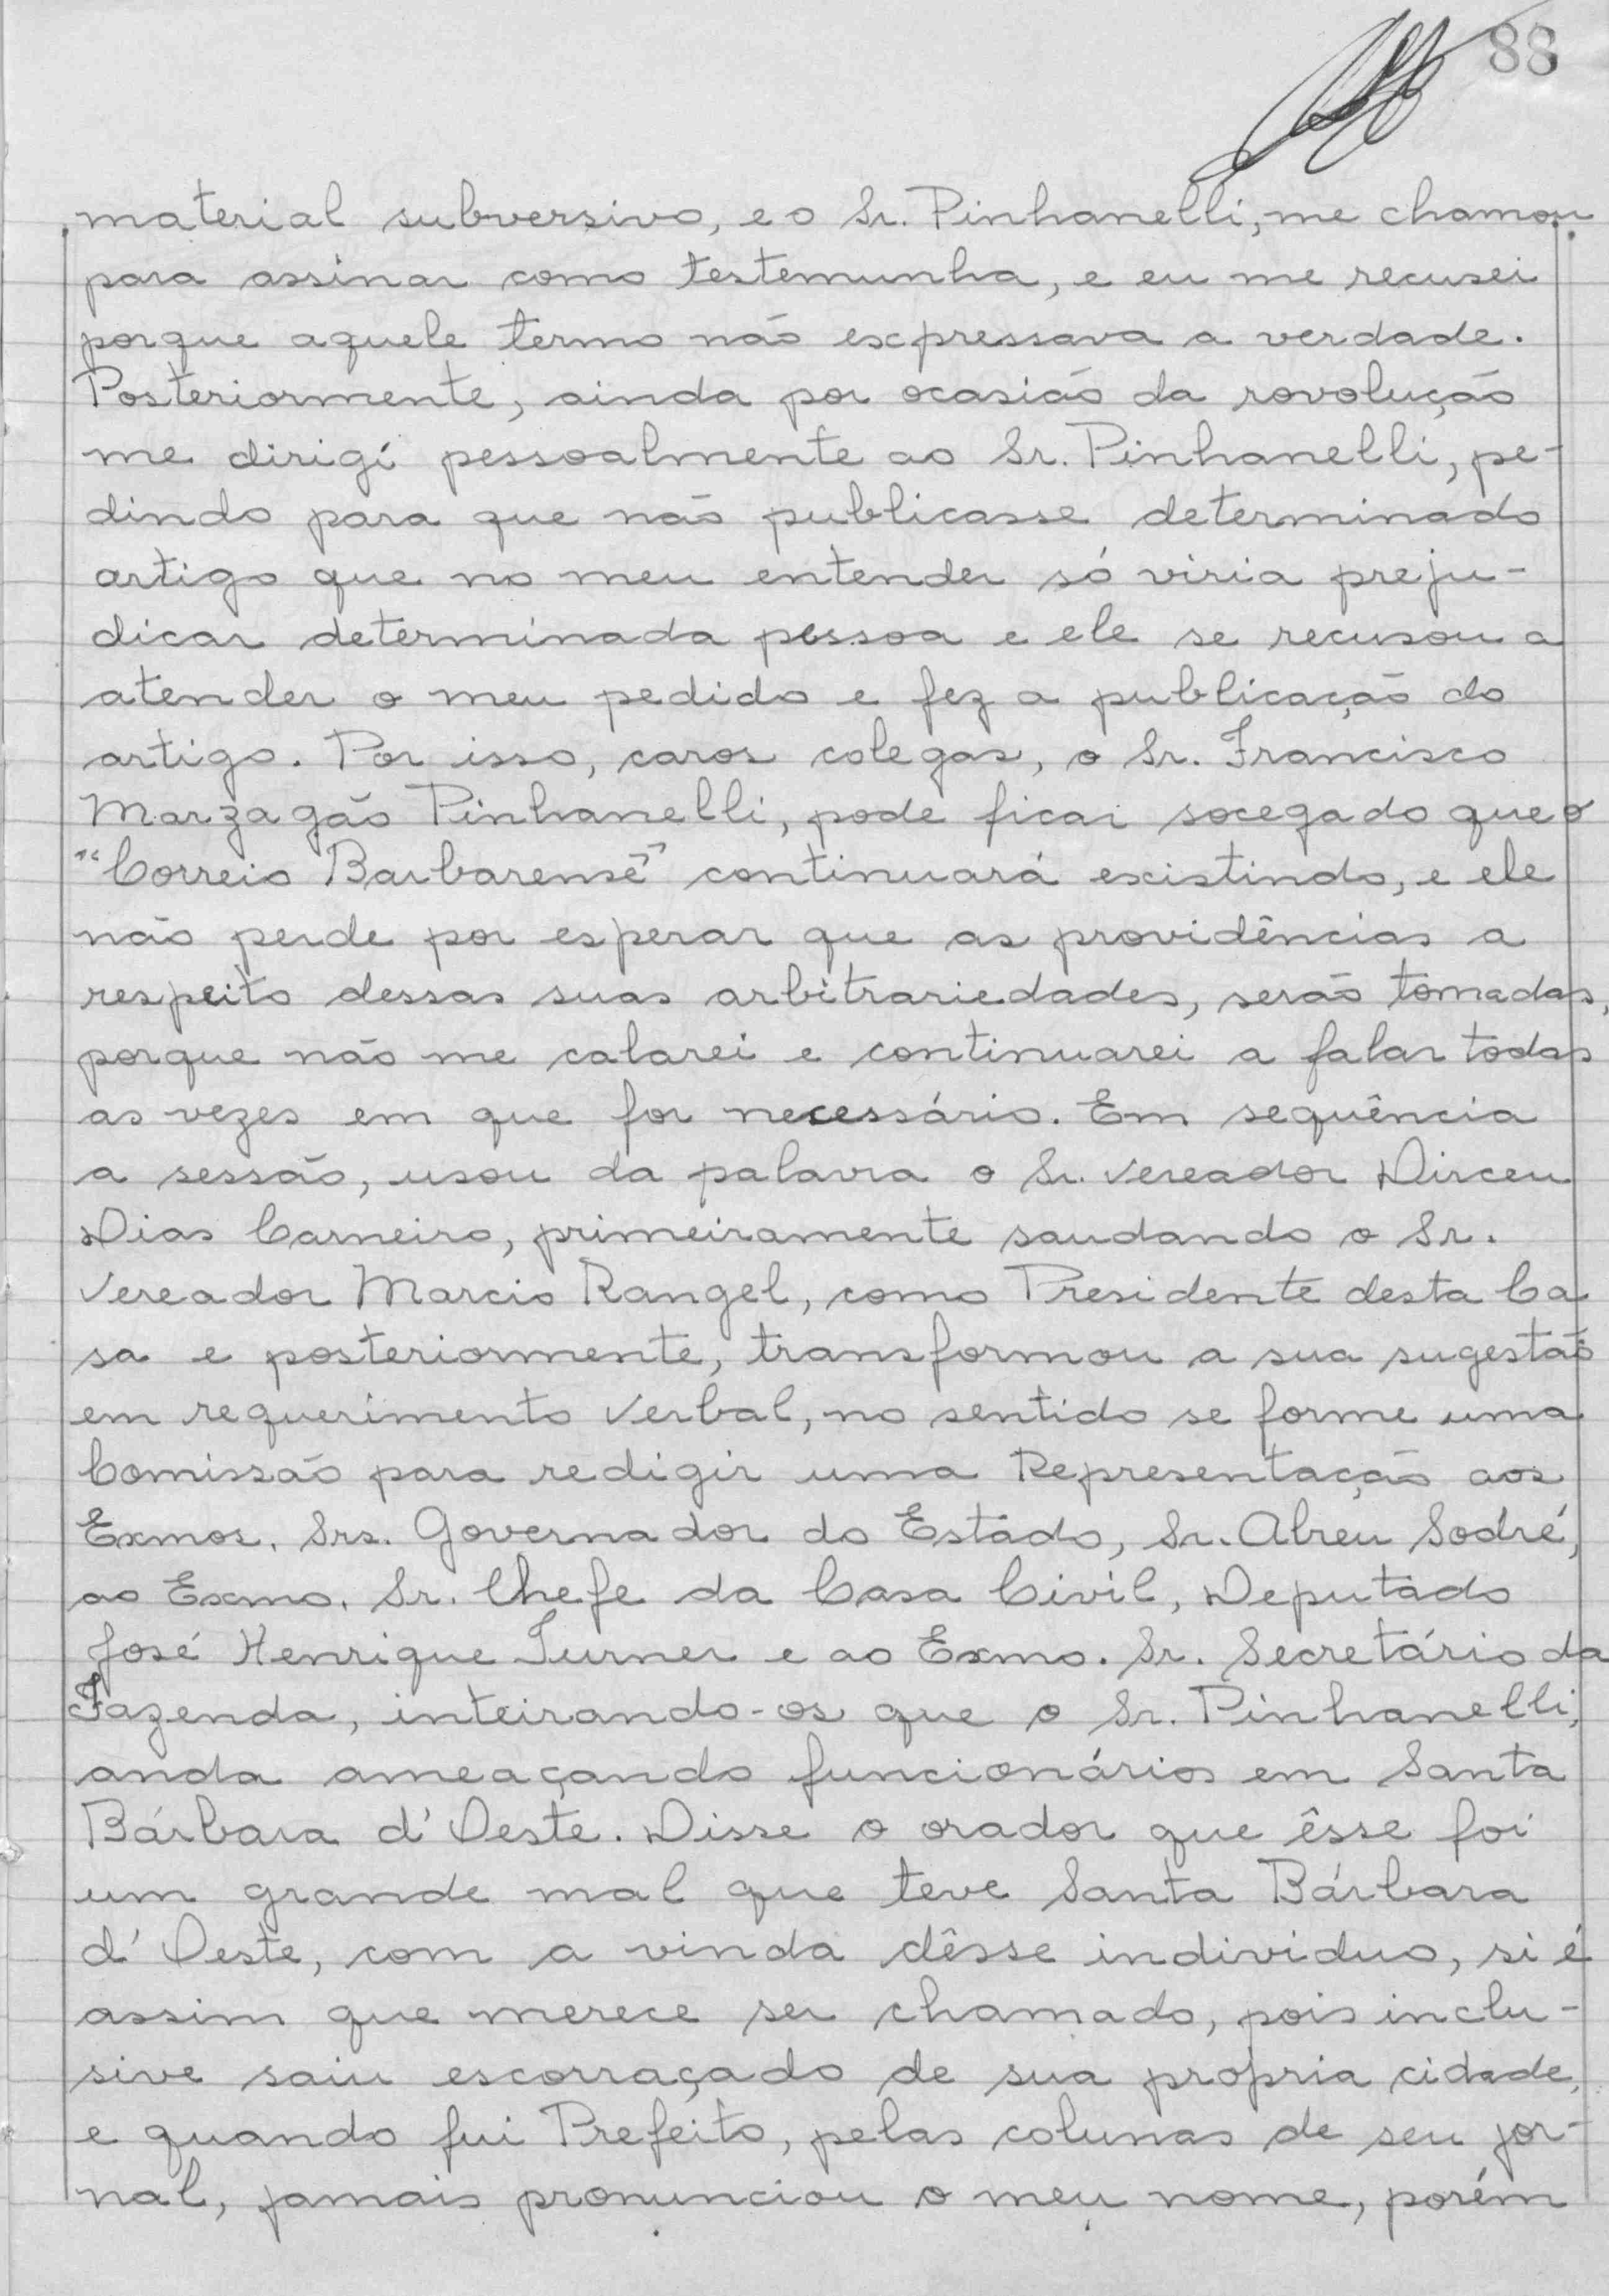 88
material subversivo, e o Sr. Pinhanelli, me chamou
para assinar como testemunha, e eu me recusei
porque aquele termo não expressava a verdade.
Posteriormente, ainda por ocasião da rovolução
me dirigí pessoalmente ao Sr. Pinhanelli, pe-
dindo para que não publicasse determinado
artigo que no meu entender só viria preju-
dicar determinada pessoa e ele se recusou a
atender o meu pedido e fez a publicação do
artigo. Por isso, caros colegas, o Sr. Francisco
Marzagão Pinhanelli, pode ficar socegado que o
"Correio Barbarense" continuará existindo, e ele
não perde por esperar que as providências a
respeito dessas suas arbitrariedades, serão tomadas,
porque não me calarei e continuarei a falar todas
as vezes em que for necessário. Em sequência
a sessão, usou da palavra o Sr. Vereador Dirceu
Dias Carneiro, primeiramente saudando o Sr.
Vereador Marcio Rangel, como Presidente desta Ca
sa e posteriormente, transformou a sua sugestão
em requerimento Verbal, no sentido se forme uma
Comissão para redigir uma Representação aos
Exmos. Srs. Governador do Estado, Sr. Abreu Sodré,
ao Exmo. Sr. Chefe da Casa Civil, Deputado
José Henrique Turner e ao Exmo. Sr. Secretário da
Fazenda, inteirando-os que o Sr. Pinhanelli,
anda ameaçando funcionários em Santa
Bárbara d'Oeste. Disse o orador que êsse foi
um grande mal que teve Santa Bárbara
d'Oeste, com a vinda dêsse individuo, si é
assim que merece ser chamado, pois inclu-
sive saiu escorraçado de sua própria cidade,
e quando fui Prefeito, pelas colunas de seu jor-
nal, jamais pronunciou o meu nome, porém